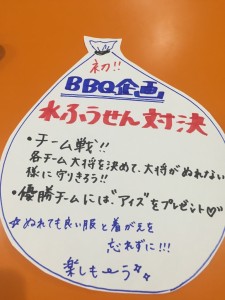 初!!
BBQ企画
水ふうせん対決
・チーム戦!!
各チーム大将を決めて、大将がぬれない
様に守りきろう!!
・優勝チームには"アイス"をプレゼント♡
☆ぬれても良い服と着がえを
忘れずに!!!
楽しもーう